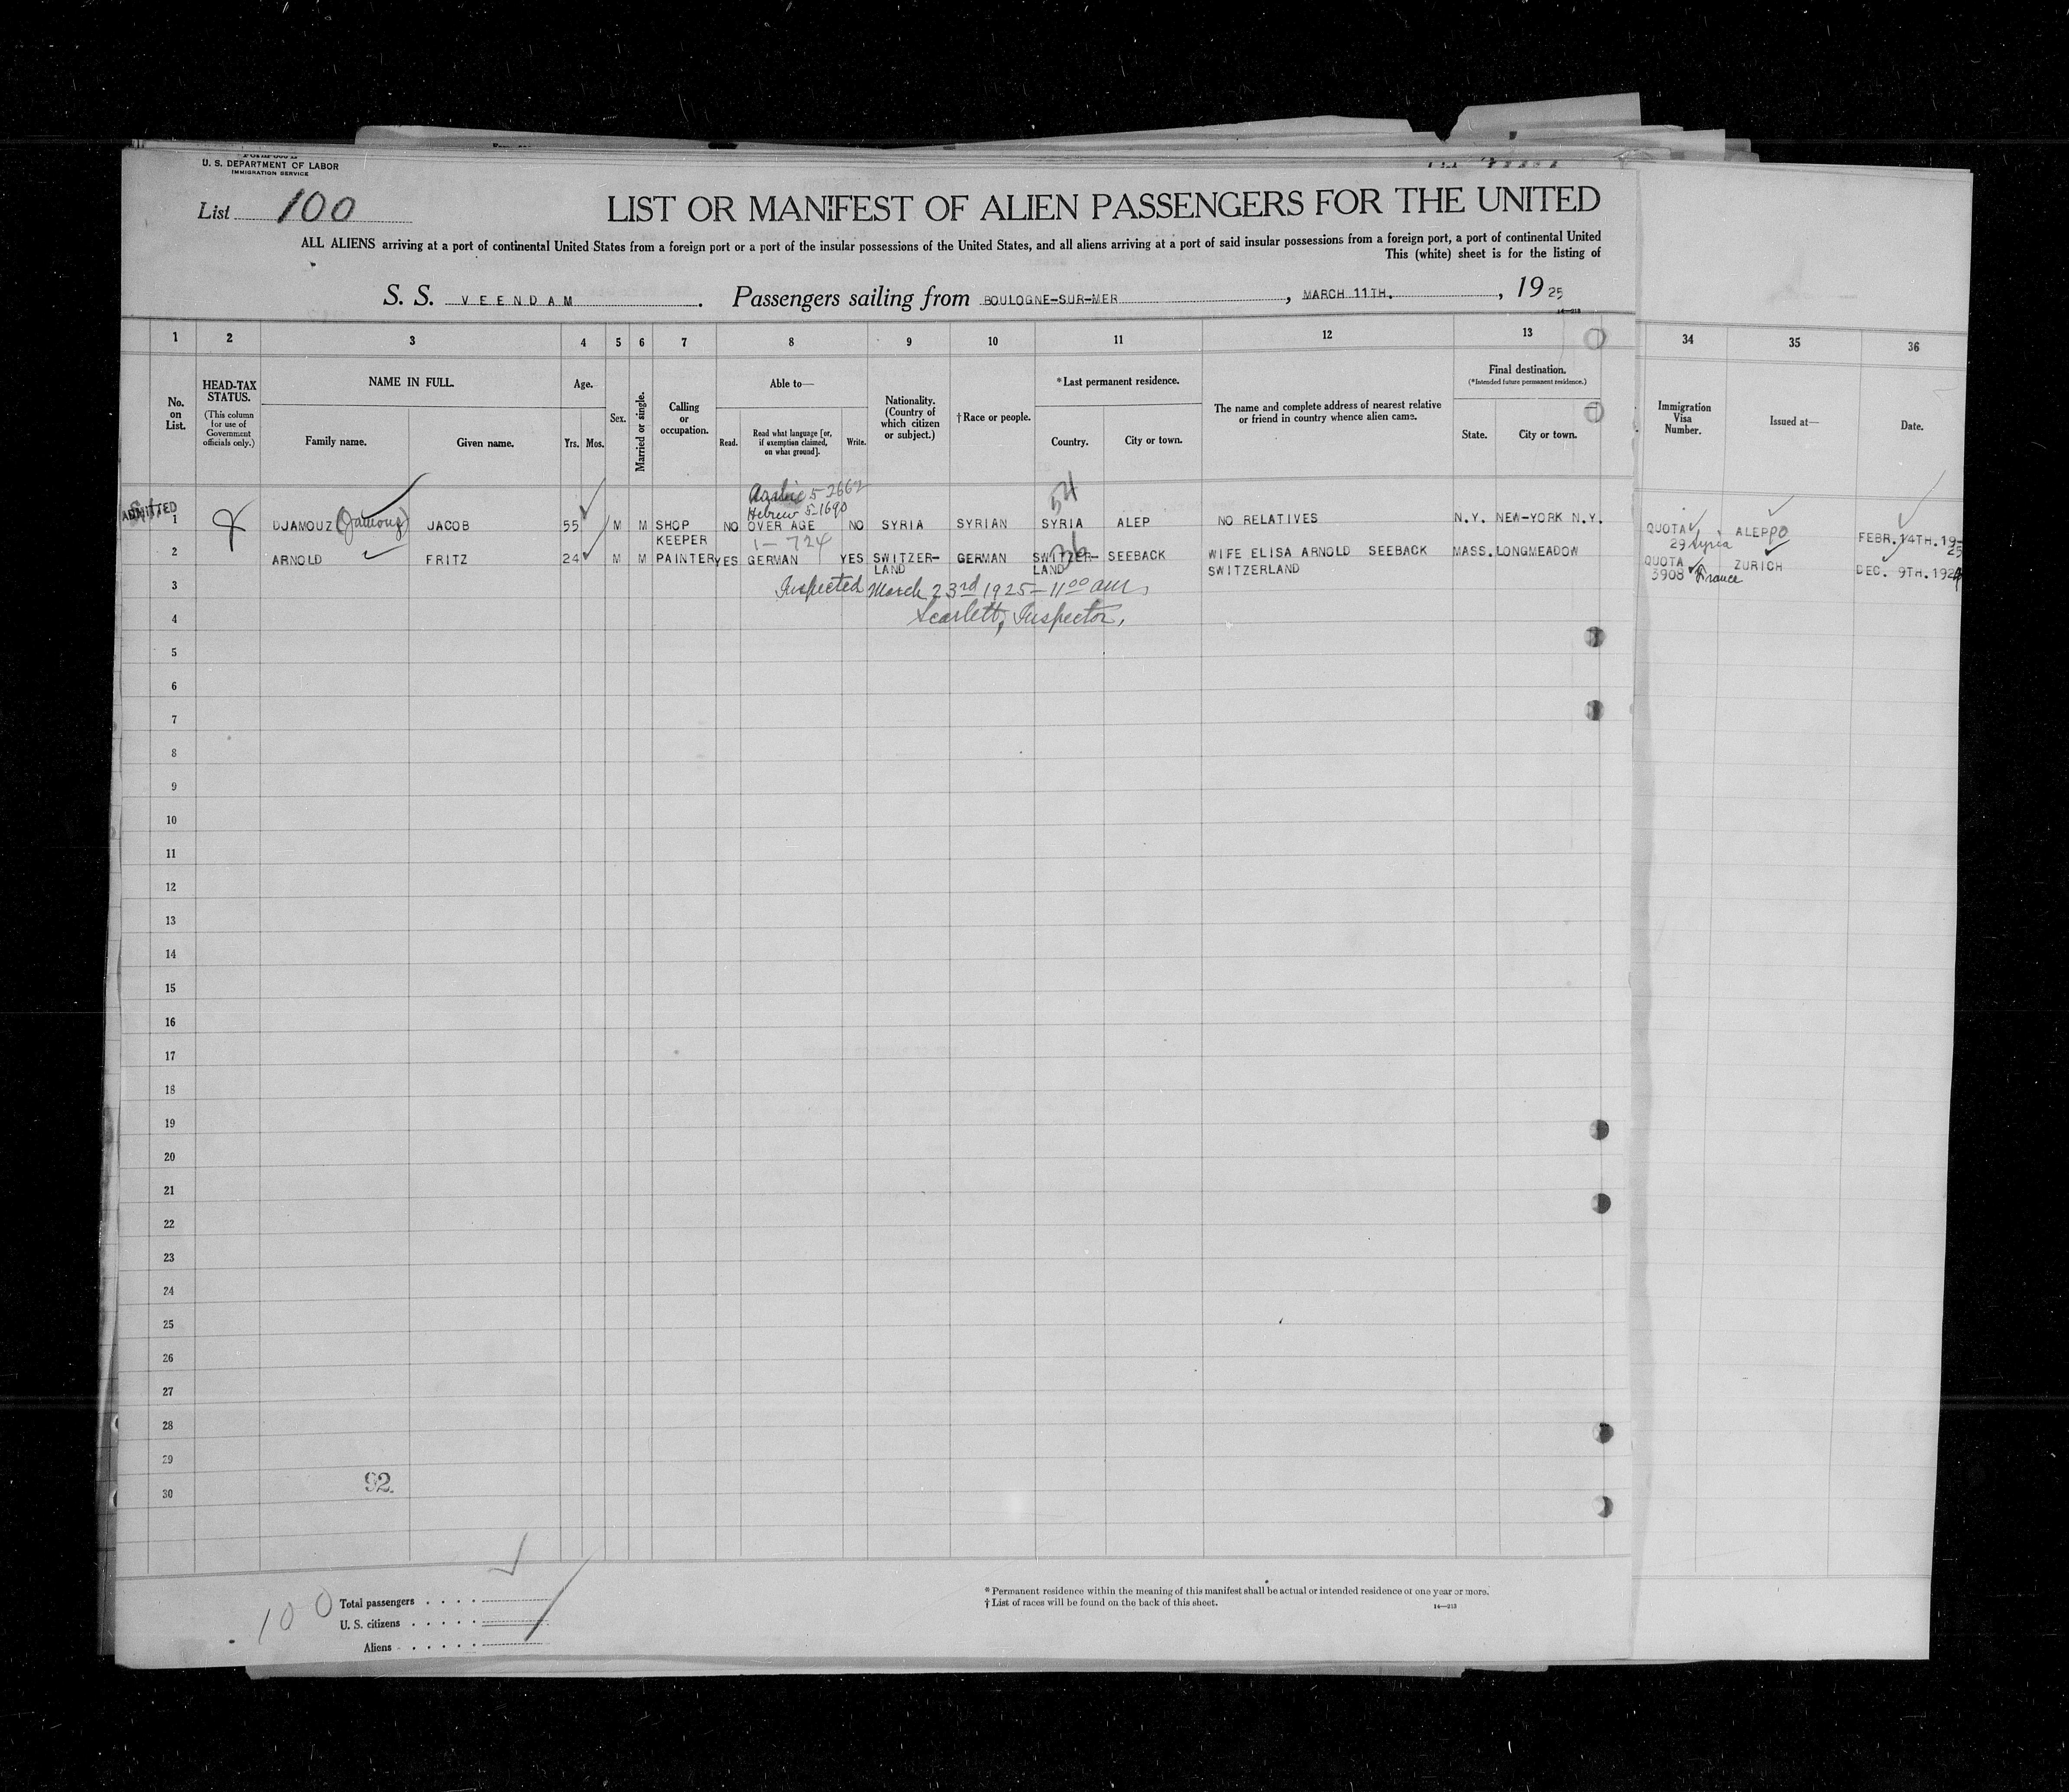 U. S. DEPARTMENT OF LABOR
IMMIGRATION SERVICE
List 100
LIST OR MANIFEST OF ALIEN PASSENGERS FOR THE UNITED
ALL ALIENS arriving at a port of continental United States from a foreign port or a port of the insular possessions of the United States, and all aliens arriving at a port of said insular possessions from a foreign port, a port of continental United
This (white) sheet is for the listing of
S. S. VEENDAM. Passengers sailing from BOULOGNE-SUR-MER, MARCH 11TH., 1925
14—213
1 2 3 4 5 6 7 8 9 10 11 12 13 34 35 36
No. on List.
HEAD-TAX STATUS.
(This column for use of Government officials only.)
NAME IN FULL.
Family name. Given name.
Age.
Yrs. Mos.
Sex.
Married or single.
Calling or occupation.
Able to—
Read. Read what language [or, if exemption claimed, on what ground]. Write.
Nationality. (Country of which citizen or subject.)
†Race or people.
*Last permanent residence.
Country. City or town.
The name and complete address of nearest relative or friend in country whence alien came.
Final destination.
(*Intended future permanent residence.)
State. City or town.
Immigration Visa Number.
Issued at—
Date.
5-2662
54
Hebrew 5-1690
ADMITTED
1 DJAMOUZ (Jamouz) JACOB 55 M M SHOP NO OVER AGE NO SYRIA SYRIAN SYRIA ALEP NO RELATIVES N.Y. NEW-YORK N.Y. QUOTA ALEPPO FEBR.14TH.19-
KEEPER 1-724 29 Syria 25
2 ARNOLD FRITZ 24 M M PAINTER YES GERMAN YES SWITZER- GERMAN SWITZER- SEEBACK WIFE ELISA ARNOLD SEEBACK MASS. LONGMEADOW QUOTA ZURICH DEC. 9TH.1924
LAND LAND SWITZERLAND 3908 France
3 Inspected March 23rd 1925 — 11 00 am
4 Scarlett, Inspector.
5
6
7
8
9
10
11
12
13
14
15
16
17
18
19
20
21
22
23
24
25
26
27
28
29
30
92.
100
Total passengers
U. S. citizens
Aliens
* Permanent residence within the meaning of this manifest shall be actual or intended residence of one year or more.
† List of races will be found on the back of this sheet.
14—213